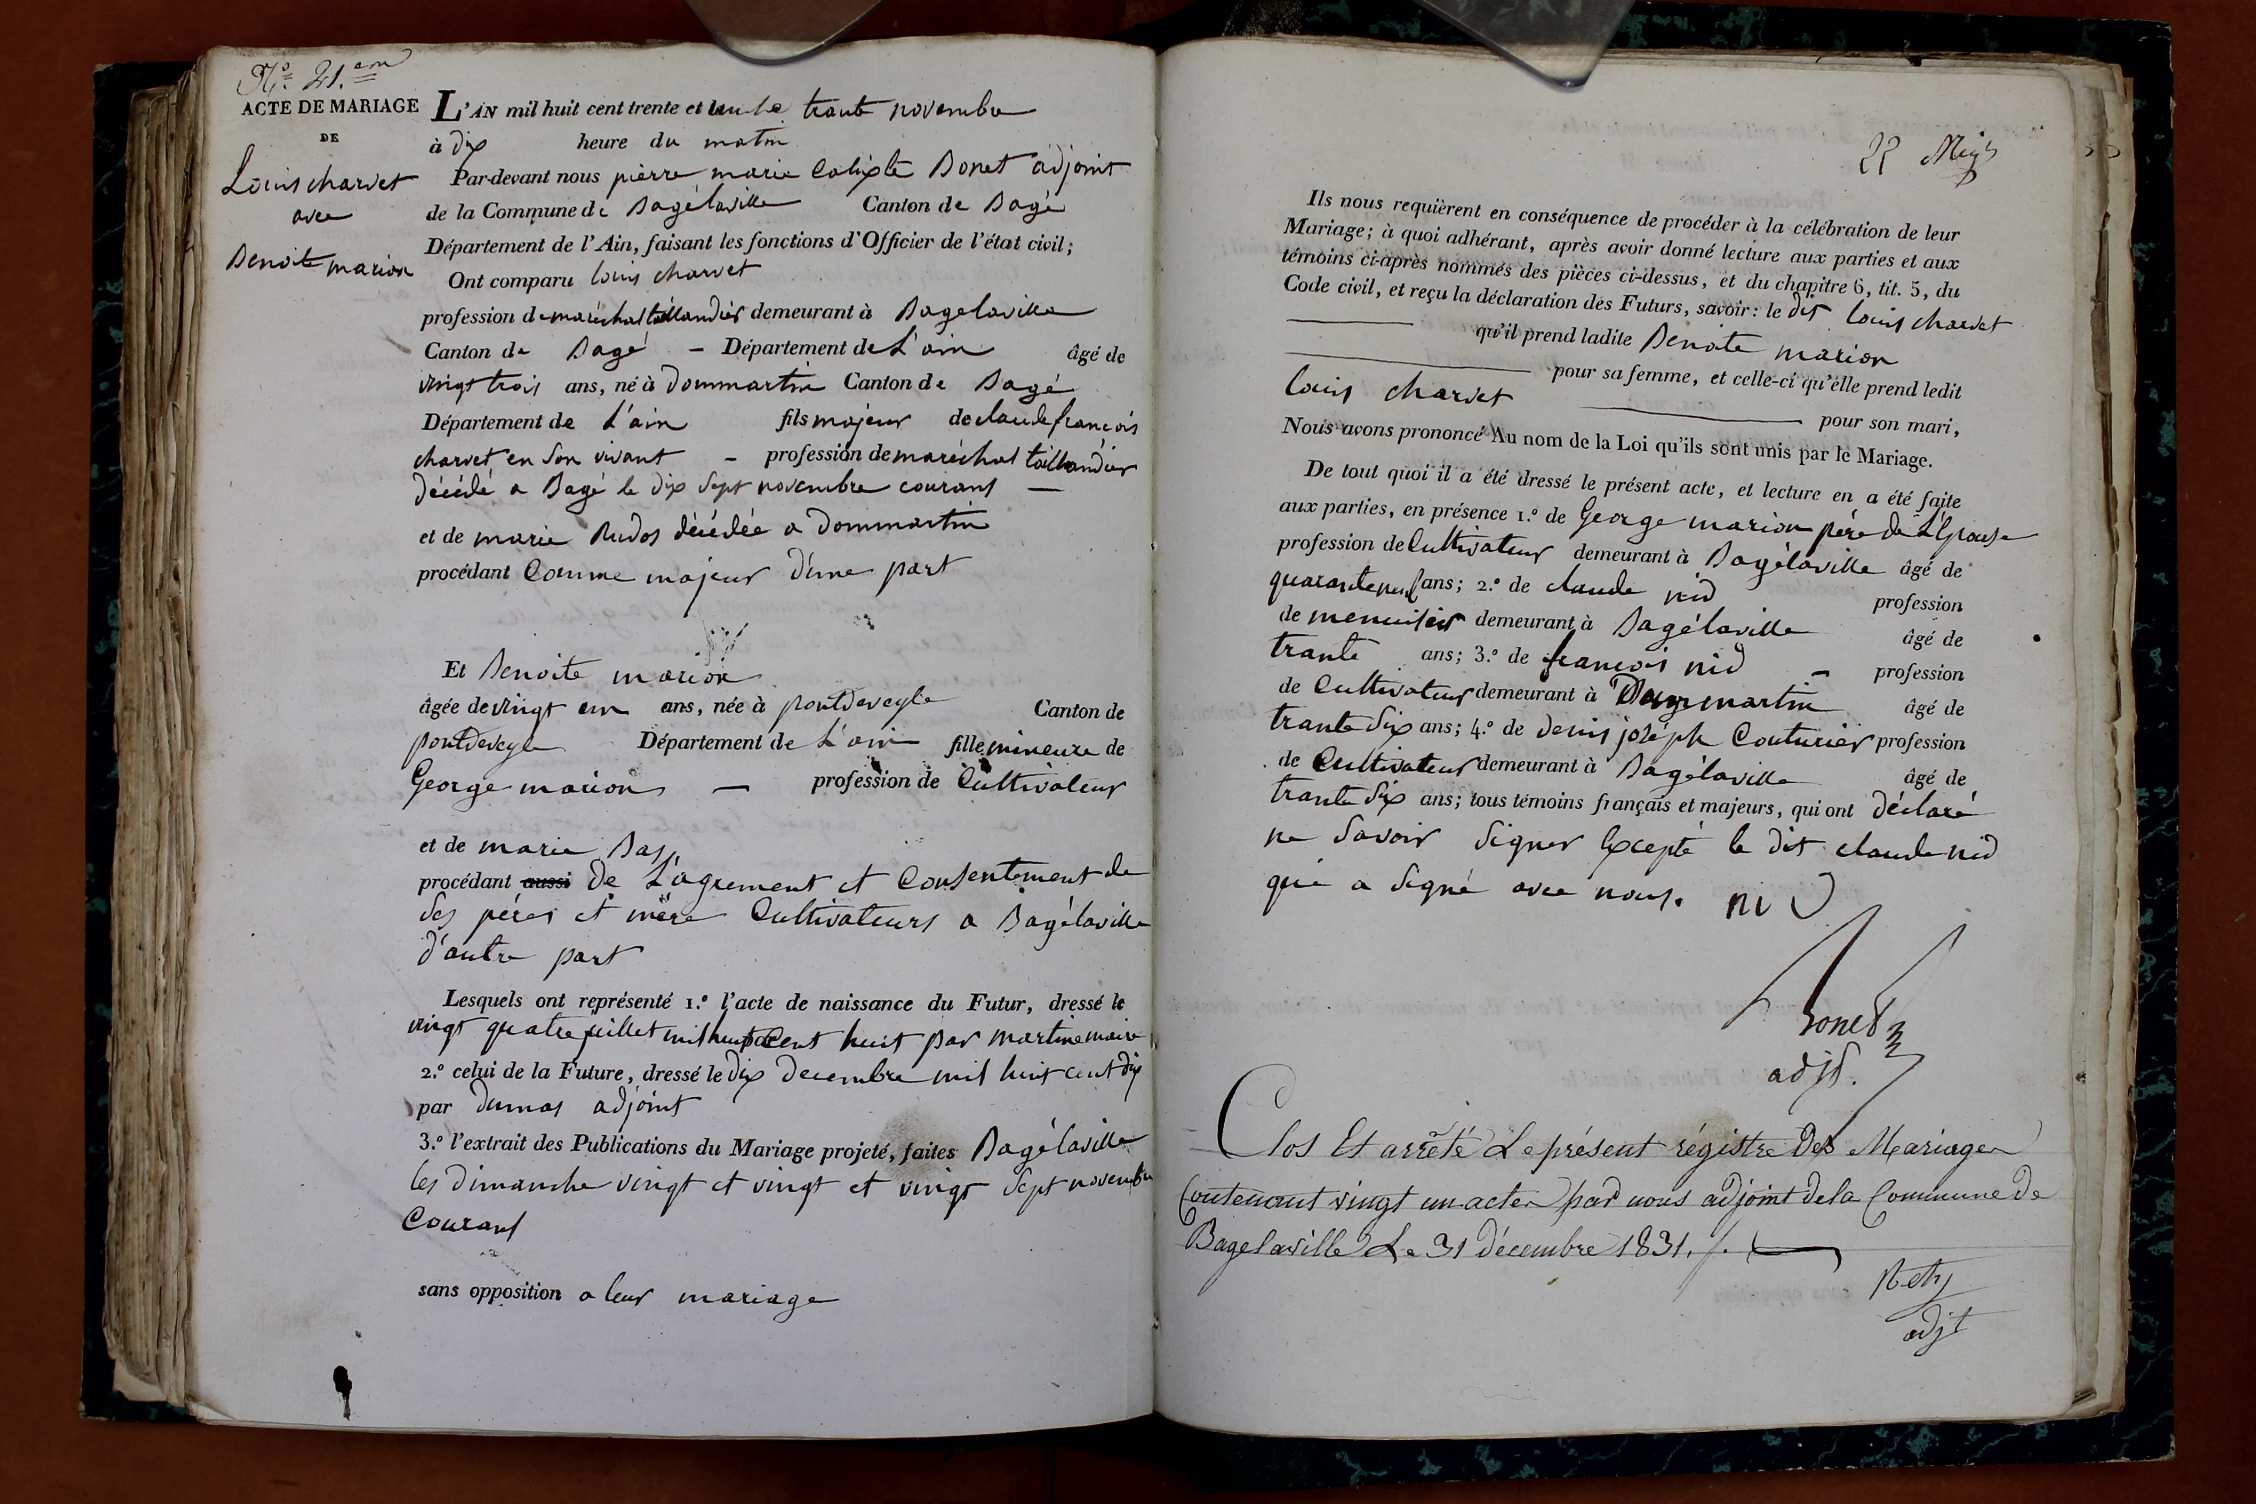 N.º 21.em
ACTE DE MARIAGE
DE
Louis charvet
avec
Benoite marion
L'AN mil huit cent trente et un le trante novembre
à dix heure du matin
Par-devant nous pierre marie Calixte Bonet adjoint
de la Commune de Bagélaville Canton de Bagé
Département de l'Ain, faisant les fonctions d'Officier de l'état civil;
Ont comparu louis charvet
profession de maréchal taillandier demeurant à Bagelaville
Canton de Bagé – Département de L'ain âgé de
vingt trois ans, né à Dommartin Canton de Bagé
Département de L'ain fils majeur de claude françois
charvet en son vivant – profession de maréchal taillandier
décédé a Bagé le dix sept novembre courant —
et de marie Rudos décédée a Dommartin
procédant Comme majeur d'une part
Et Benoite marion
âgée de vingt un ans, née à pontdeveyle Canton de
pontdeveyle Département de L'ain fille mineure de
George marion — profession de Cultivateur
et de marie Bas
procédant aussi De L'agrement et Consentement de
Ses péres et mère Cultivateurs a Bagélaville
d'autre part
Lesquels ont représenté 1.º l'acte de naissance du Futur, dressé le
vingt quatre juillet mil huit Cent huit par martine maire
2.º celui de la Future, dressé le dix decembre mil huit cent dix
par dumas adjoint
3.º l'extrait des Publications du Mariage projeté, faites Bagélaville
les dimanche vingt et vingt et vingt Sept novembre
Courant
sans opposition a leur mariage
Ils nous requièrent en conséquence de procéder à la célébration de leur
Mariage; à quoi adhérant, après avoir donné lecture aux parties et aux
témoins ci-après nommés des pièces ci-dessus, et du chapitre 6, tit. 5, du
Code civil, et reçu la déclaration des Futurs, savoir: le dit louis charvet
qu'il prend ladite Benoite marion
pour sa femme, et celle-ci qu'elle prend ledit
louis charvet pour son mari,
Nous avons prononcé Au nom de la Loi qu'ils sont unis par le Mariage.
De tout quoi il a été dressé le présent acte, et lecture en a été faite
aux parties, en présence 1.º de George marion père de L'épouse
profession de Cultivateur demeurant à Bagélaville âgé de
quarante neuf ans; 2.º de claude nid profession
de menuisier demeurant à Bagélaville âgé de
trante ans; 3.º de françois nid – profession
de Cultivateur demeurant à Dommartin âgé de
trante Six ans; 4.º de denis joseph Couturier profession
de Cultivateur demeurant à Bagélaville âgé de
trante Six ans; tous témoins français et majeurs, qui ont déclaré
ne Savoir Signer Excepté le dit claude nid
qui a Signé avec nous. niD
Bonet
adjt.
Clos Et arrêté Le présent régistre Des Mariages
Contenant vingt un actes par nous adjoint de la Commune de
Bagelaville Le 31 décembre 1831. /.
adjt